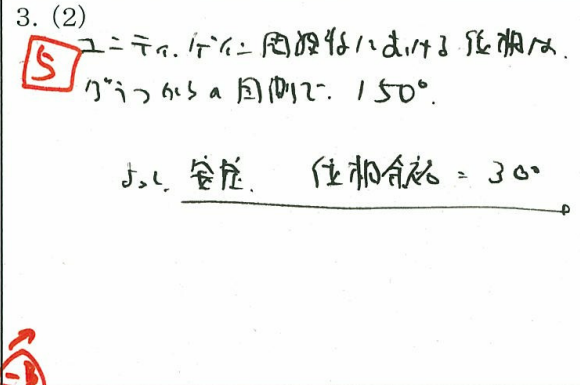 3. (2)
5
ユニティ.ゲイン周波数における位相は.
グラフからの図測で. 150°.
よって. 安定. 位相余裕 = 30°